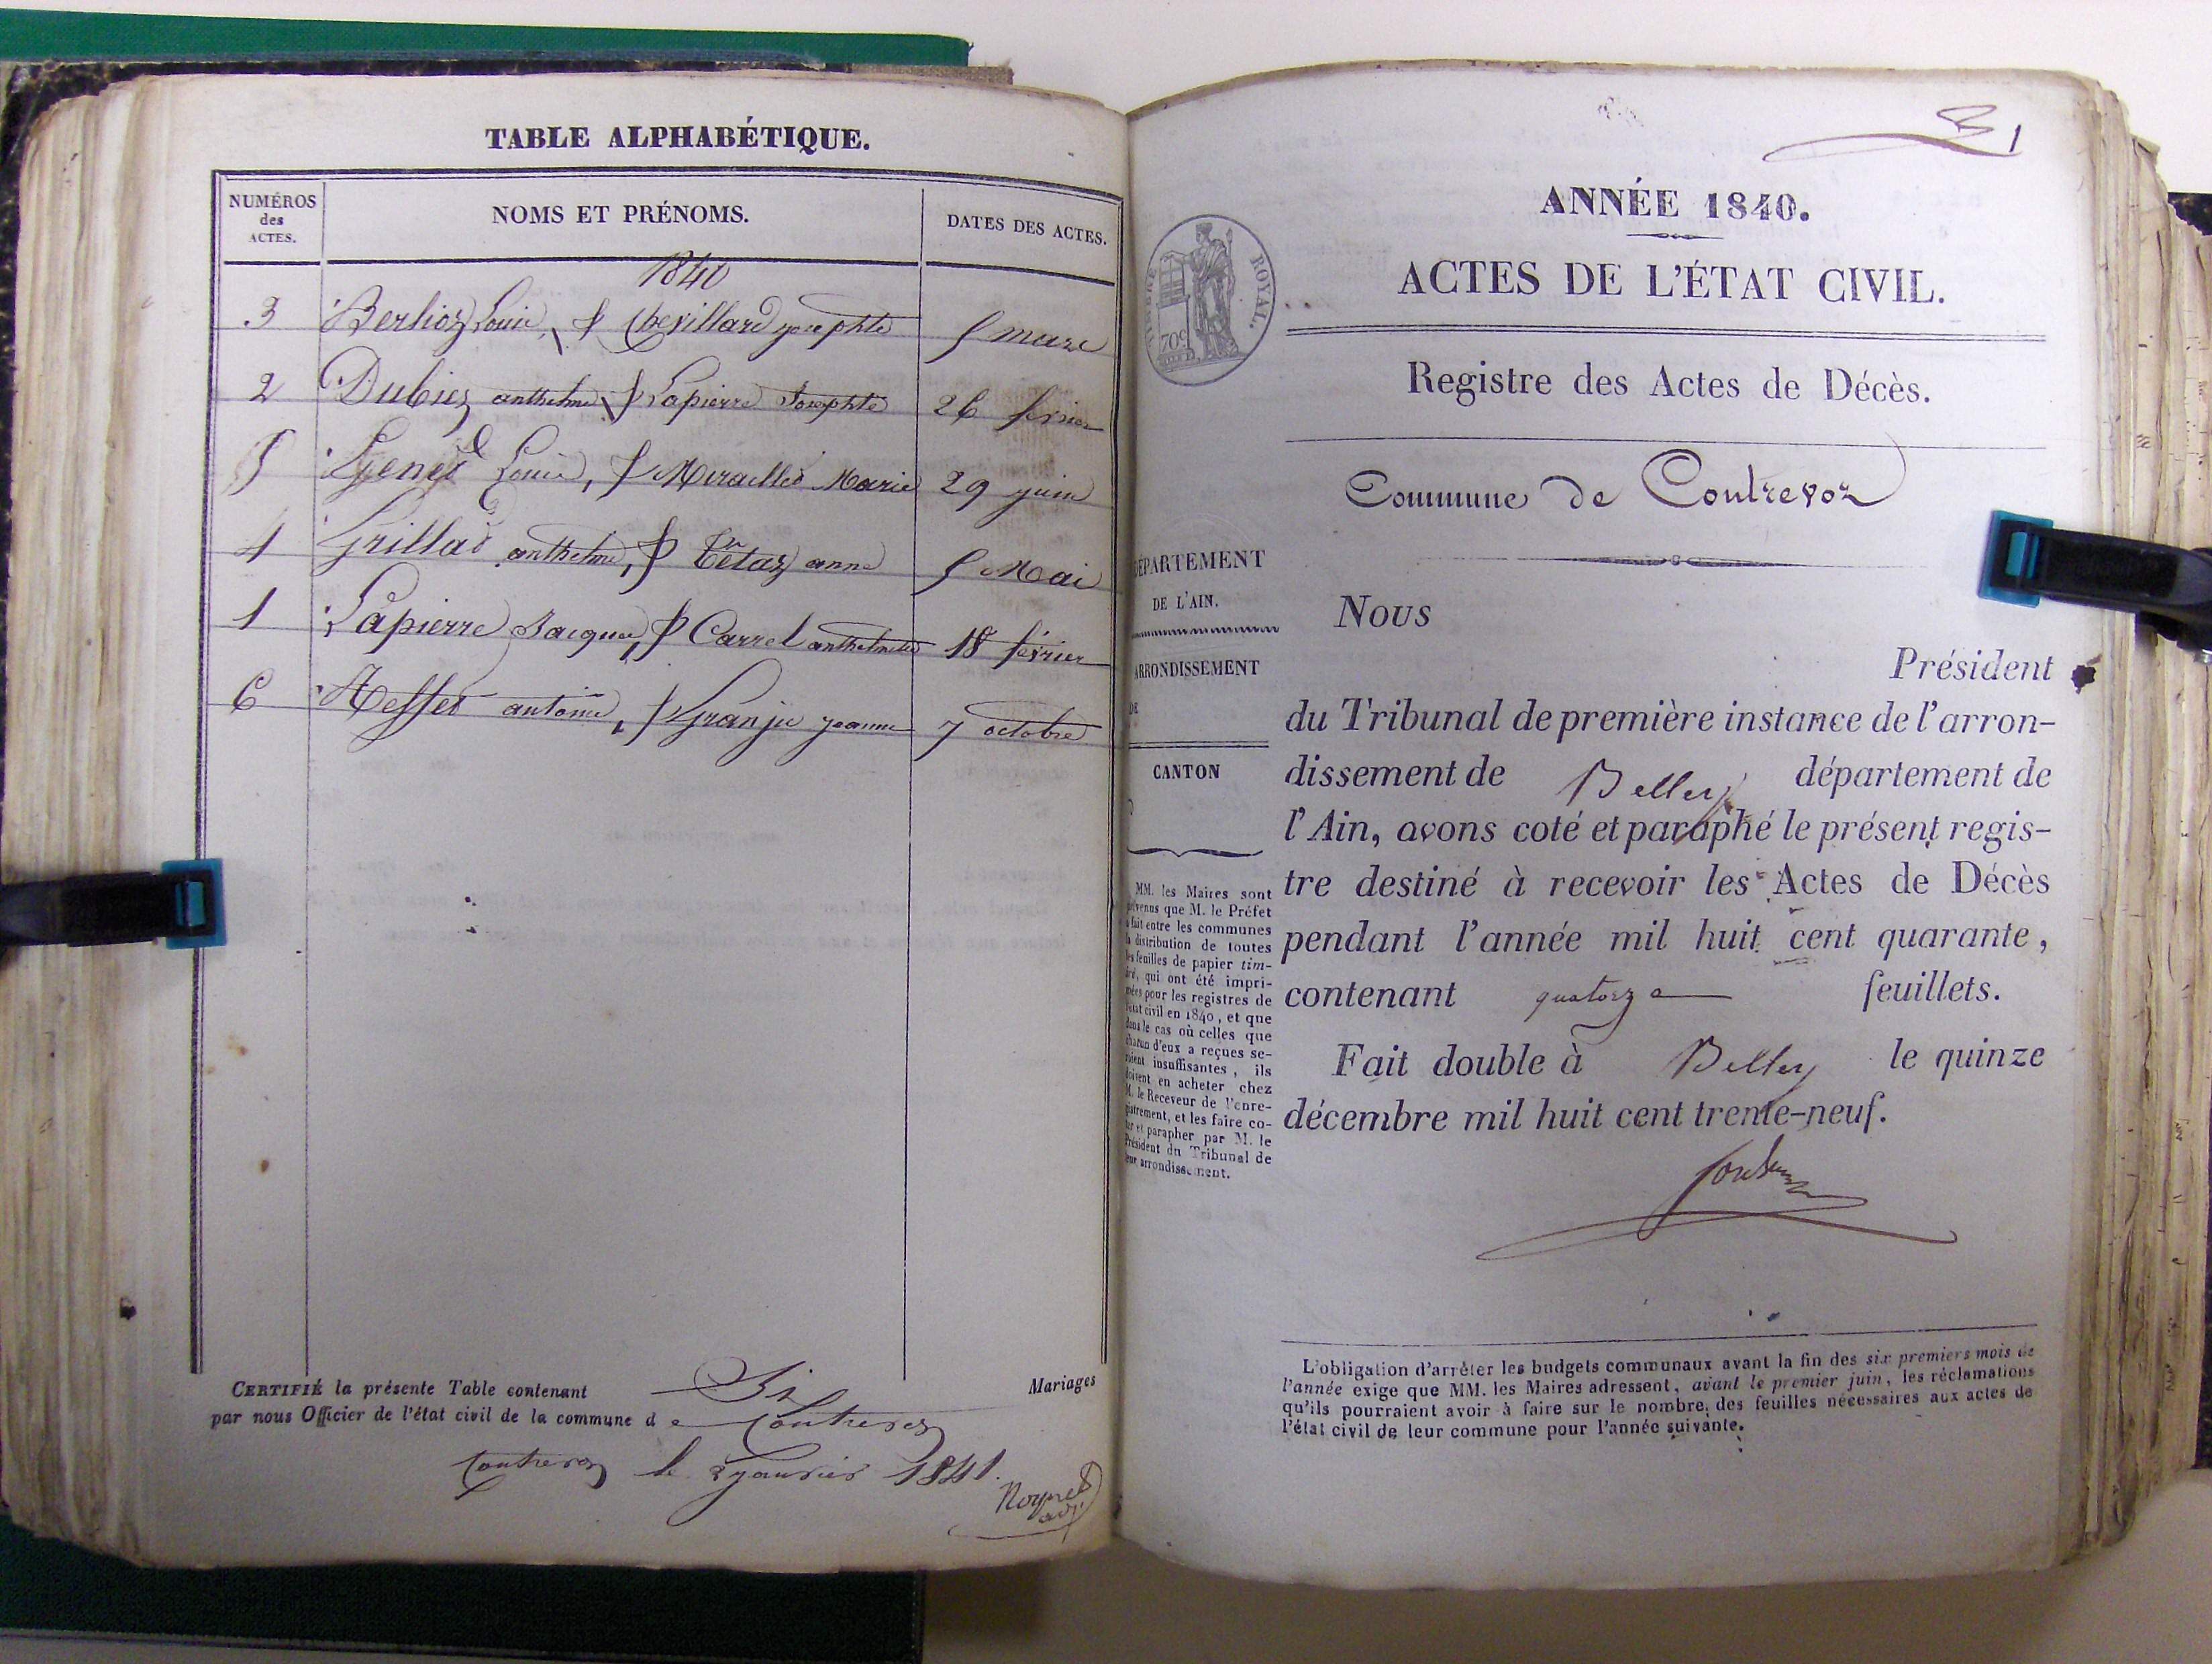 TABLE ALPHABÉTIQUE.
NUMÉROS des ACTES.
NOMS ET PRÉNOMS.
DATES DES ACTES.
1840
3 Berlioz Louis, & Chevillard josephte 5 mars
2 Dubiez anthelme & Lapierre Josephte 26 fevrier
5 Genet Louis, & Mirailles Marie 29 juin
4 Grillat anthelme, & Tétaz anne 5 Mai
1 Lapierre Jacques, & Carrel anthelmette 18 février
6 antoine, & Granju jeanne 7 octobre
CERTIFIÉ la présente Table contenant Six Mariages
par nous Officier de l'état civil de la commune de Contrevoz
Contrevoz le 2 janvier 1841.
1
ANNÉE 1840.
ACTES DE L'ÉTAT CIVIL.
TIMBRE ROYAL.
70c
Registre des Actes de Décès.
Commune de Contrevoz
DÉPARTEMENT
DE L'AIN.
ARRONDISSEMENT
DE
CANTON
MM. les Maires sont
prévenus que M. le Préfet
a fait entre les communes
la distribution de toutes
les feuilles de papier tim-
bré, qui ont été impri-
mées pour les registres de
l'état civil en 1840, et que
dans le cas où celles que
chacun d'eux a reçues se-
raient insuffisantes, ils
doivent en acheter chez
M. le Receveur de l'enre-
gistrement, et les faire co-
ter et parapher par M. le
Président du Tribunal de
leur arrondissement.
Nous
Président
du Tribunal de première instance de l'arron-
dissement de Belley département de
l'Ain, avons coté et paraphé le présent regis-
tre destiné à recevoir les Actes de Décès
pendant l'année mil huit cent quarante,
contenant quatorze feuillets.
Fait double à Belley le quinze
décembre mil huit cent trente-neuf.
L'obligation d'arrêter les budgets communaux avant la fin des six premiers mois de
l'année exige que MM. les Maires adressent, avant le premier juin, les réclamations
qu'ils pourraient avoir à faire sur le nombre des feuilles nécessaires aux actes de
l'état civil de leur commune pour l'année suivante.